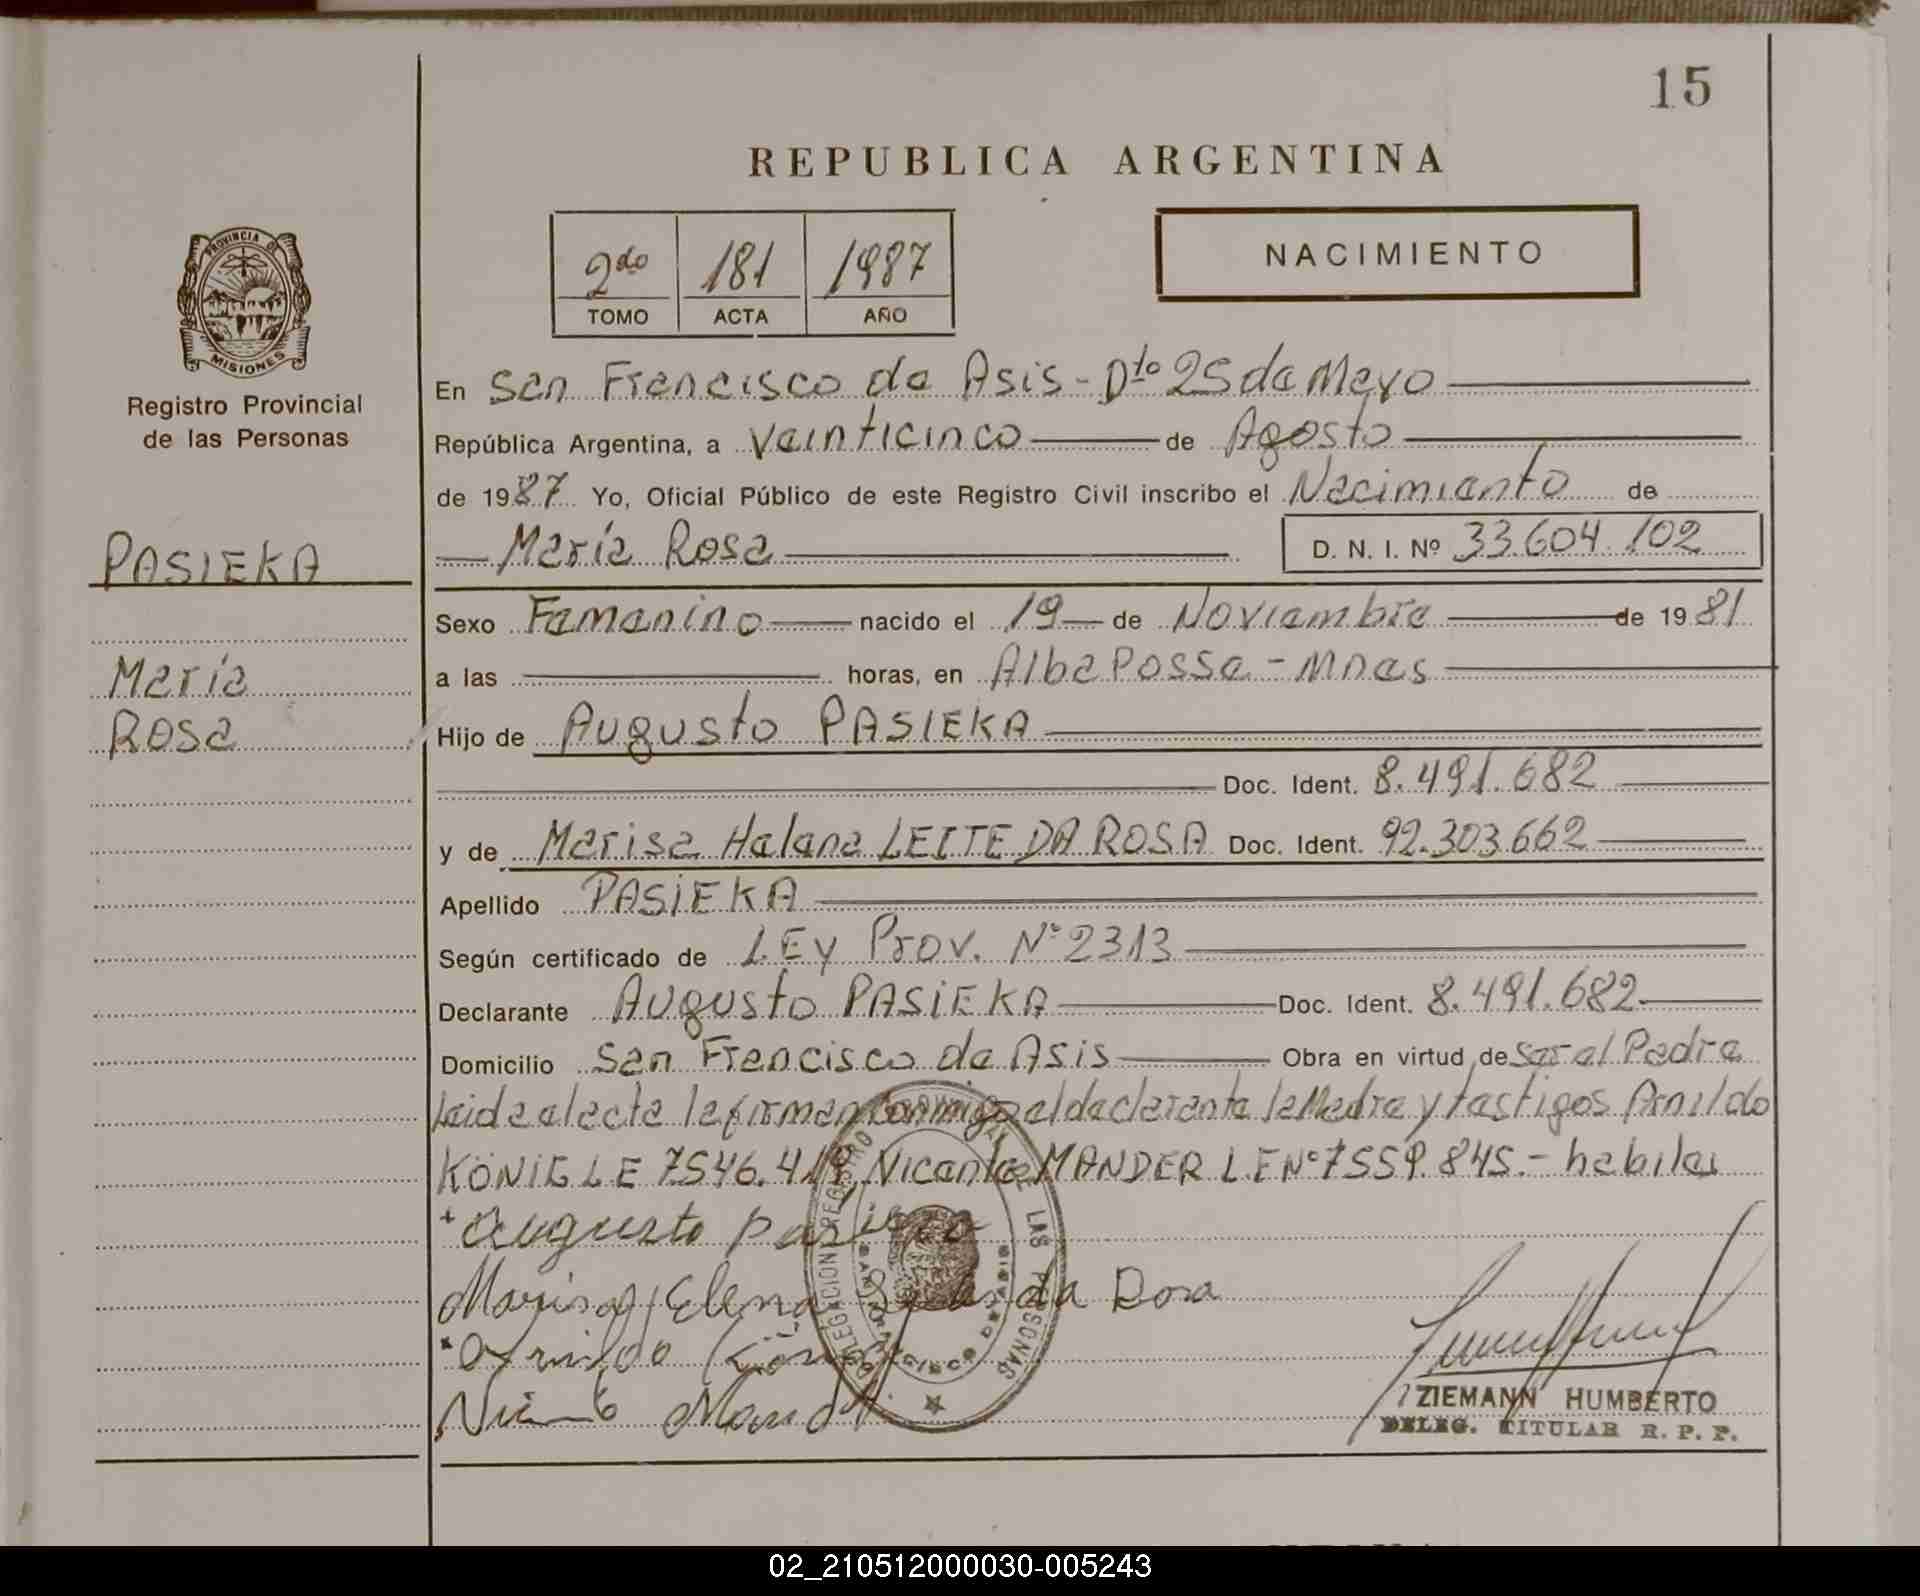 15
REPUBLICA ARGENTINA
2do 181 1987
TOMO ACTA AÑO
NACIMIENTO
PROVINCIA DE
MISIONES
Registro Provincial
de las Personas
PASIEKA
María
Rosa
En San Francisco de Asis - Dto 25 de Mayo
República Argentina, a Veinticinco de Agosto
de 1987 Yo, Oficial Público de este Registro Civil inscribo el Nacimiento de
María Rosa D. N. I. Nº 33.604.102
Sexo Femenino nacido el 19 de Noviembre de 1981
a las horas, en Alba Posse - Mnes
Hijo de Augusto PASIEKA
Doc. Ident. 8.491.682
y de Marisa Halana LEITE DA ROSA Doc. Ident. 92.303.662
Apellido PASIEKA
Según certificado de LEY Prov. Nº 2313
Declarante Augusto PASIEKA Doc. Ident. 8.491.682
Domicilio San Francisco de Asis Obra en virtud de ser el Padre
Leida el acta la firman conmigo el declarante la Madre y testigos Arnildo
KÖNIG LE 7546.419, Vicente MANDER L.E Nº 7559.845.- habiles
Augusto Pasieka
Marisa Elena da Rosa
Arnildo König
ZIEMANN HUMBERTO
DELEG. TITULAR R. P. P.
02_210512000030-005243